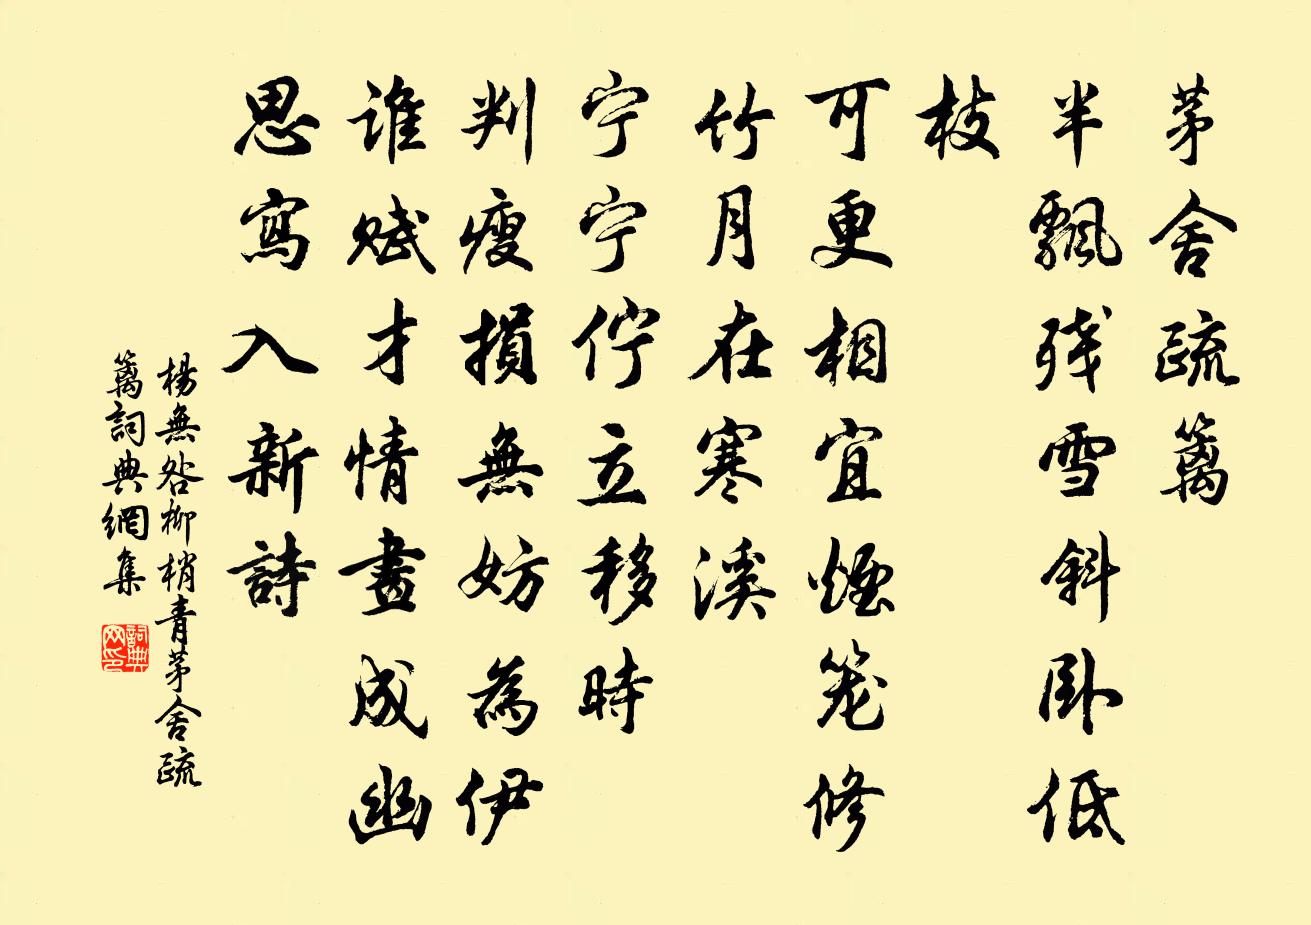 茅舍疏篱
半飄残雪斜卧低
枝
可更相宜煙笼修
竹月在寒溪
宁宁佇立移時
判瘦損無妨為伊
谁赋才情畫成幽
思寫入新詩
楊無咎柳梢青茅舍疏
篱詞典網集
詞典网印